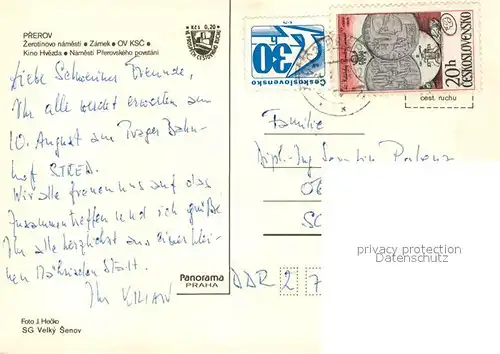 PŘEROV
Žerotínovo náměstí • Zámek • OV KSČ •
Kino Hvězda • Náměstí Přerovského povstání
Kčs 0,20
Liebe Schweriner Freunde,
Ihr alle werdet erwartet am
10. August am Prager Bahn-
hof STŘED.
Wir alle freuen uns auf das
Zusammentreffen und ich grüße
Ihr alle herzlichst aus einer klei-
nen Mährischen Stadt.
Ihr KILIAN
Foto J. Hečko
SG Velký Šenov
Panorama
PRAHA
30h
Československo
20h
ČESKOSLOVENSKO
čest. ruchu
Familie
Dipl.-Ing
DDR 2 7
privacy protection
Ansichtskartenhandel.com